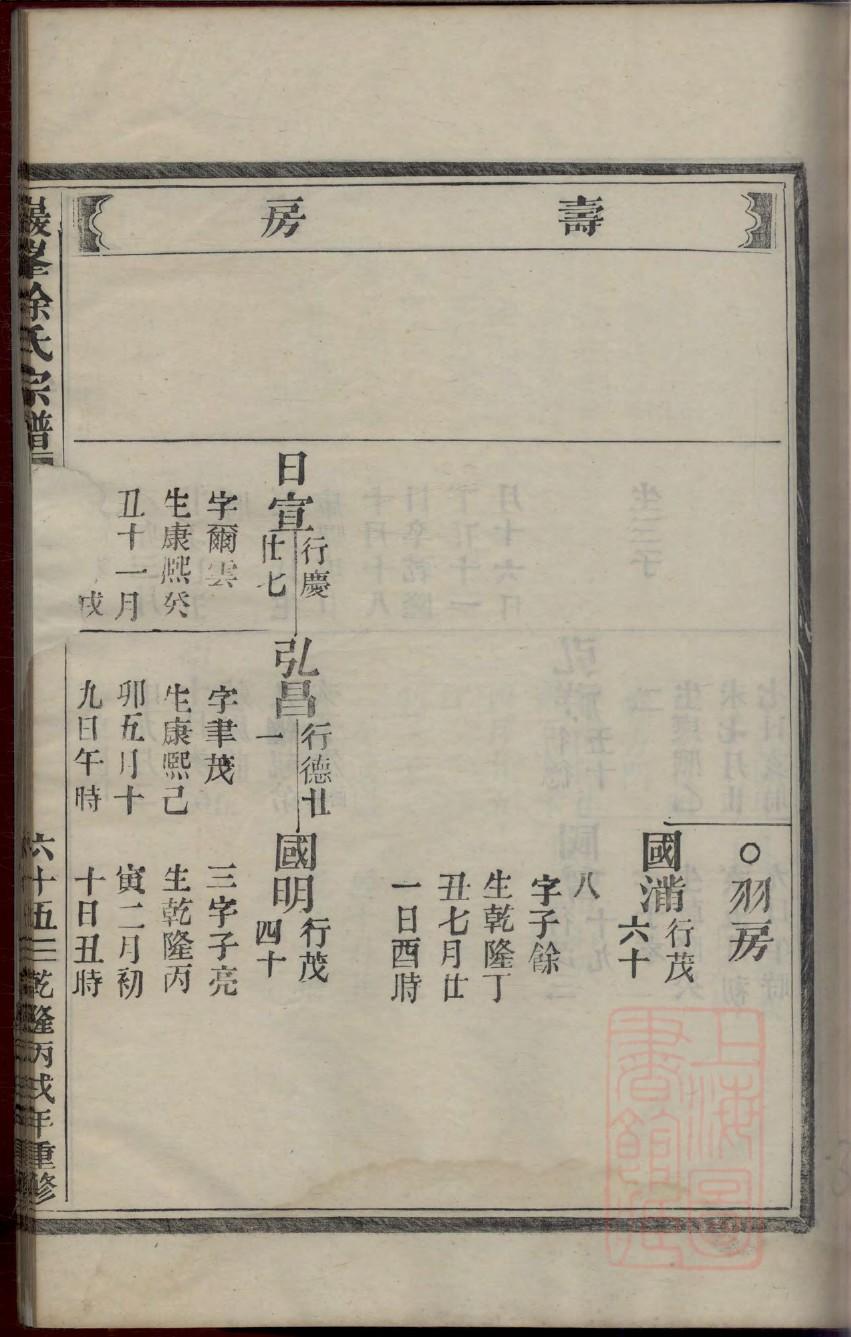 壽房
○羽房
國潲行茂六十
八
字子餘
生乾隆丁
丑七月廿
一日酉時
日宣行慶廿七
字爾雲
生康熙癸
丑十一月
戌
弘昌行德廿一
字聿茂
生康熙己
卯五月十
九日午時
國明行茂四十
三字子亮
生乾隆丙
寅二月初
十日丑時
巖峯徐氏宗譜
六十五
乾隆丙戌年重修
上海圖書館藏